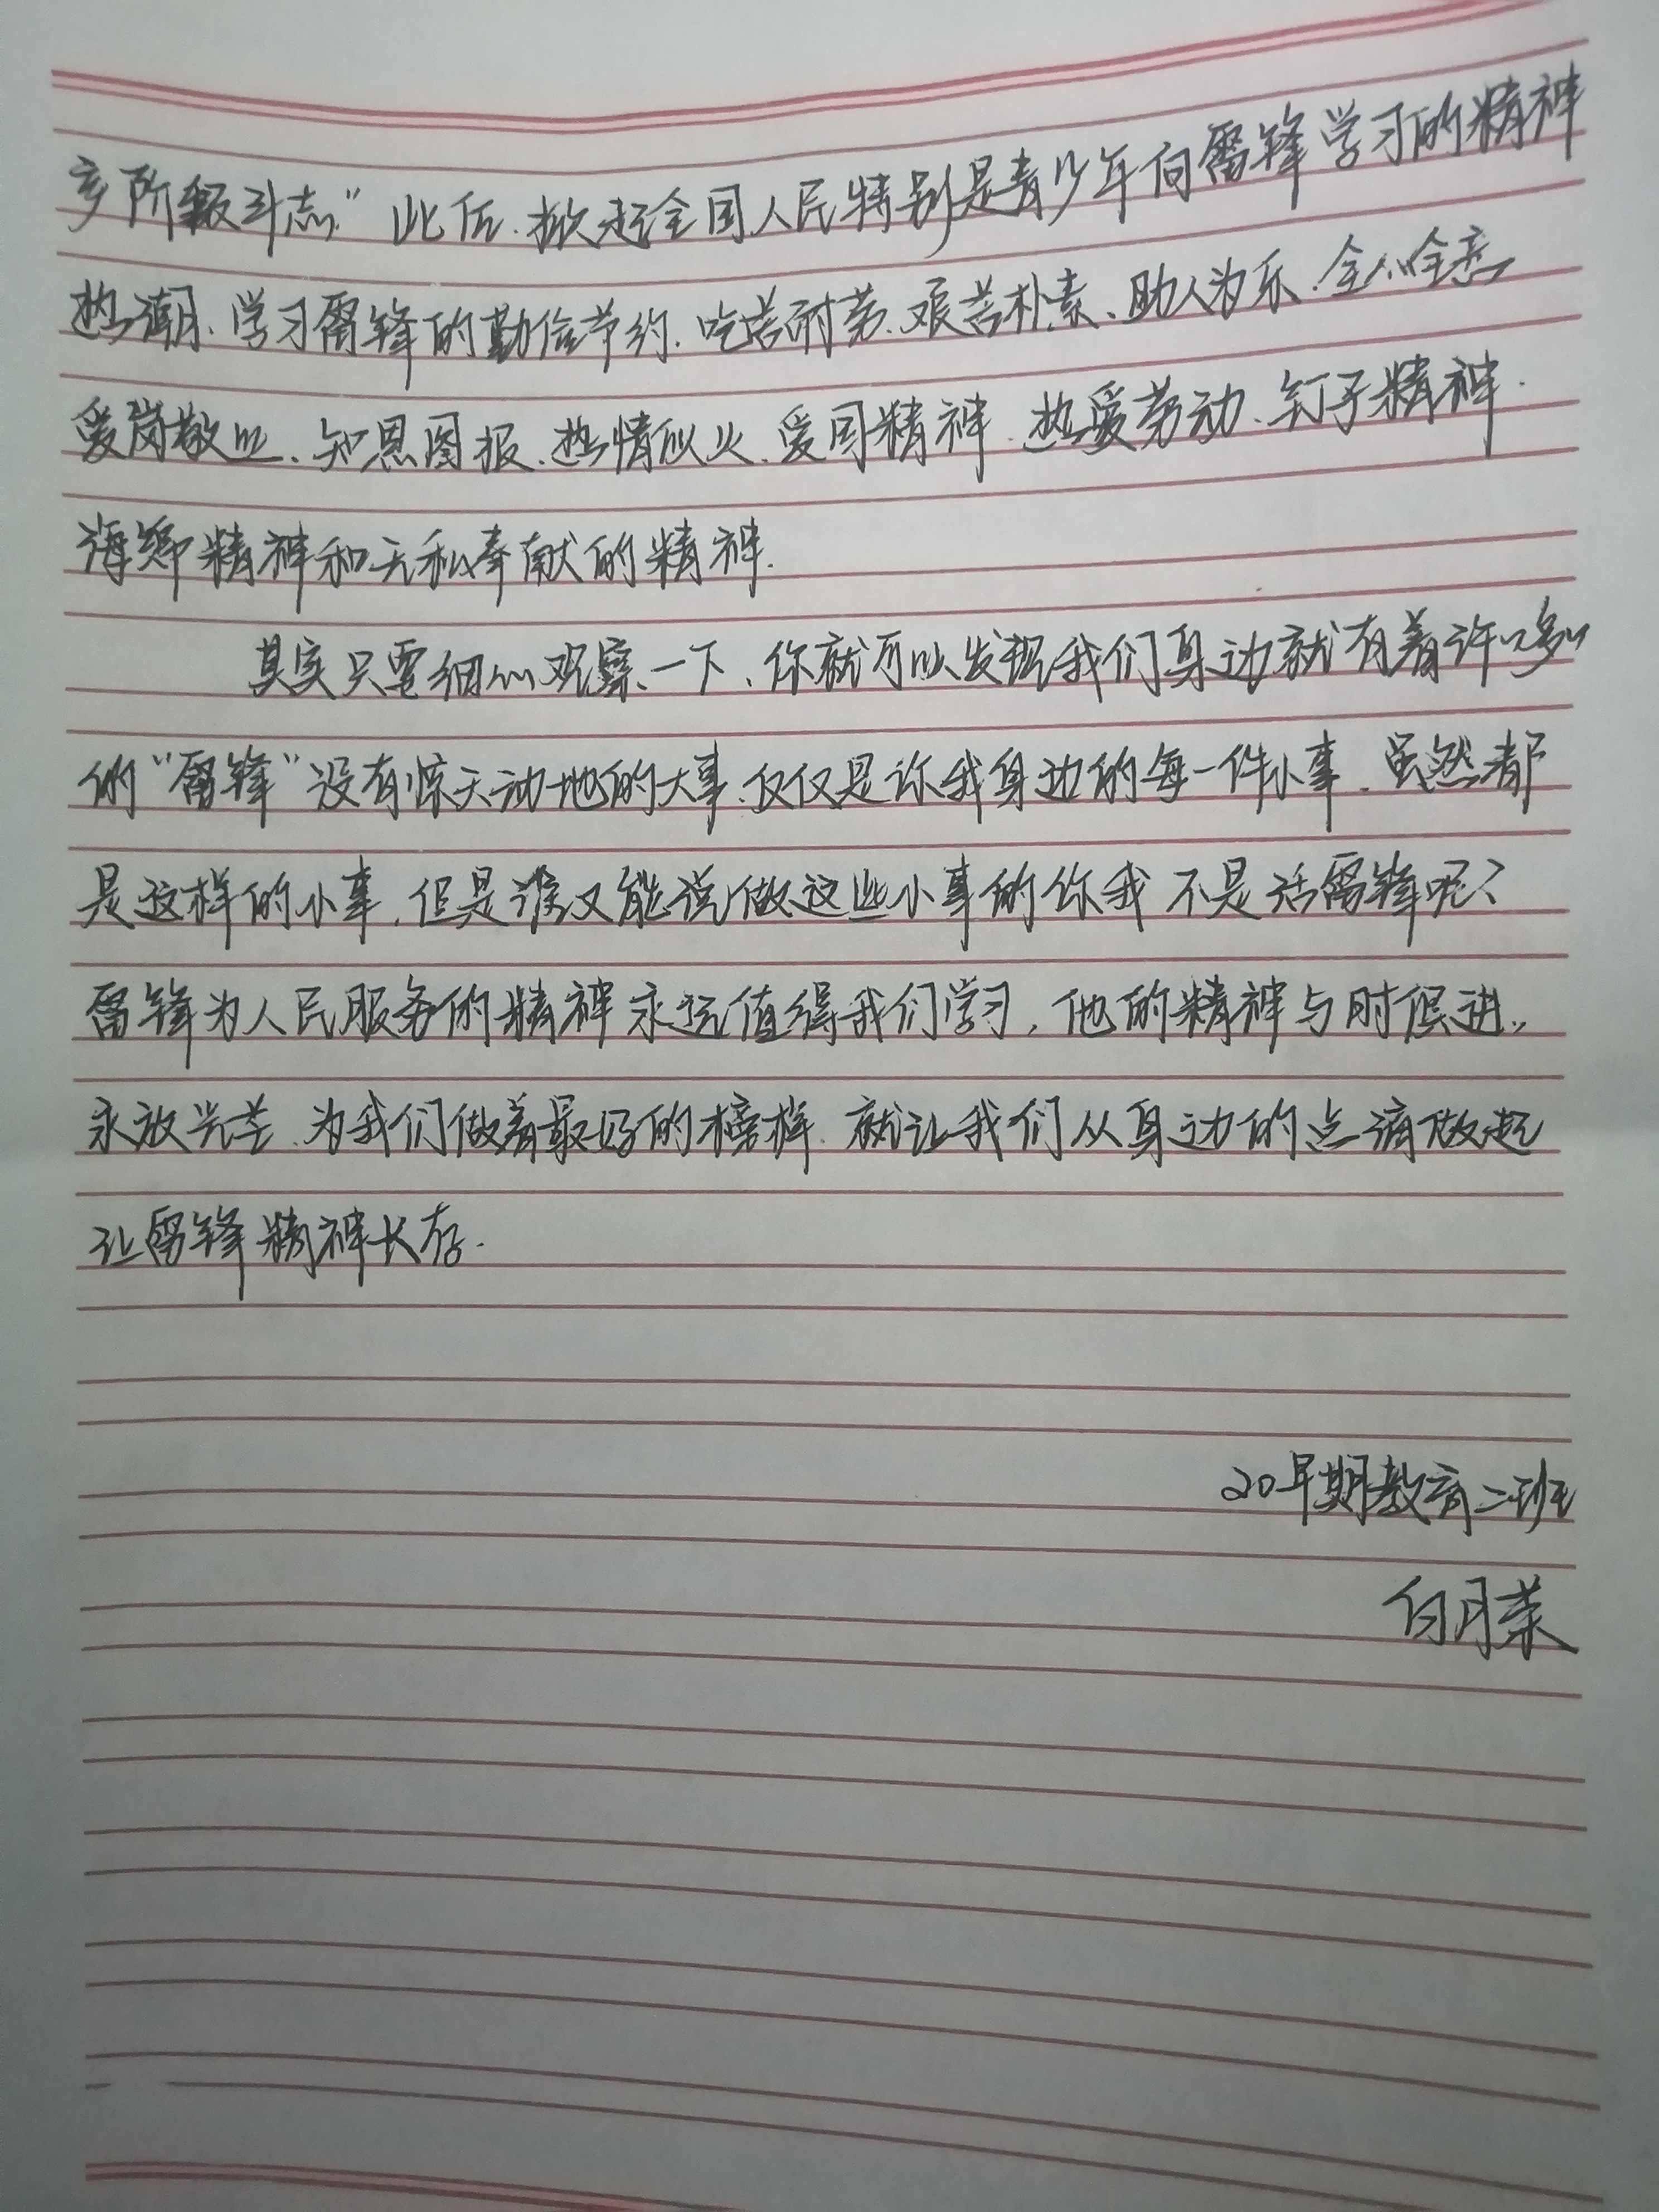 产阶级斗志。”此后、掀起全国人民特别是青少年向雷锋学习的精神
热潮、学习雷锋的勤俭节约、吃苦耐劳、艰苦朴素、助人为乐、全心全意
爱岗敬业、知恩图报、热情似火、爱国精神、热爱劳动、钉子精神、
海绵精神和无私奉献的精神.
其实只要细心观察一下、你就可以发现我们身边就有着许许多多
的“雷锋”没有惊天动地的大事、仅仅是你我身边的每一件小事、虽然都
是这样的小事、但是谁又能说做这些小事的你我不是活雷锋呢？
雷锋为人民服务的精神永远值得我们学习，他的精神与时俱进，
永放光芒、为我们做着最好的榜样、就让我们从身边的点滴做起
让雷锋精神长存.
20早期教育二班
白月荣